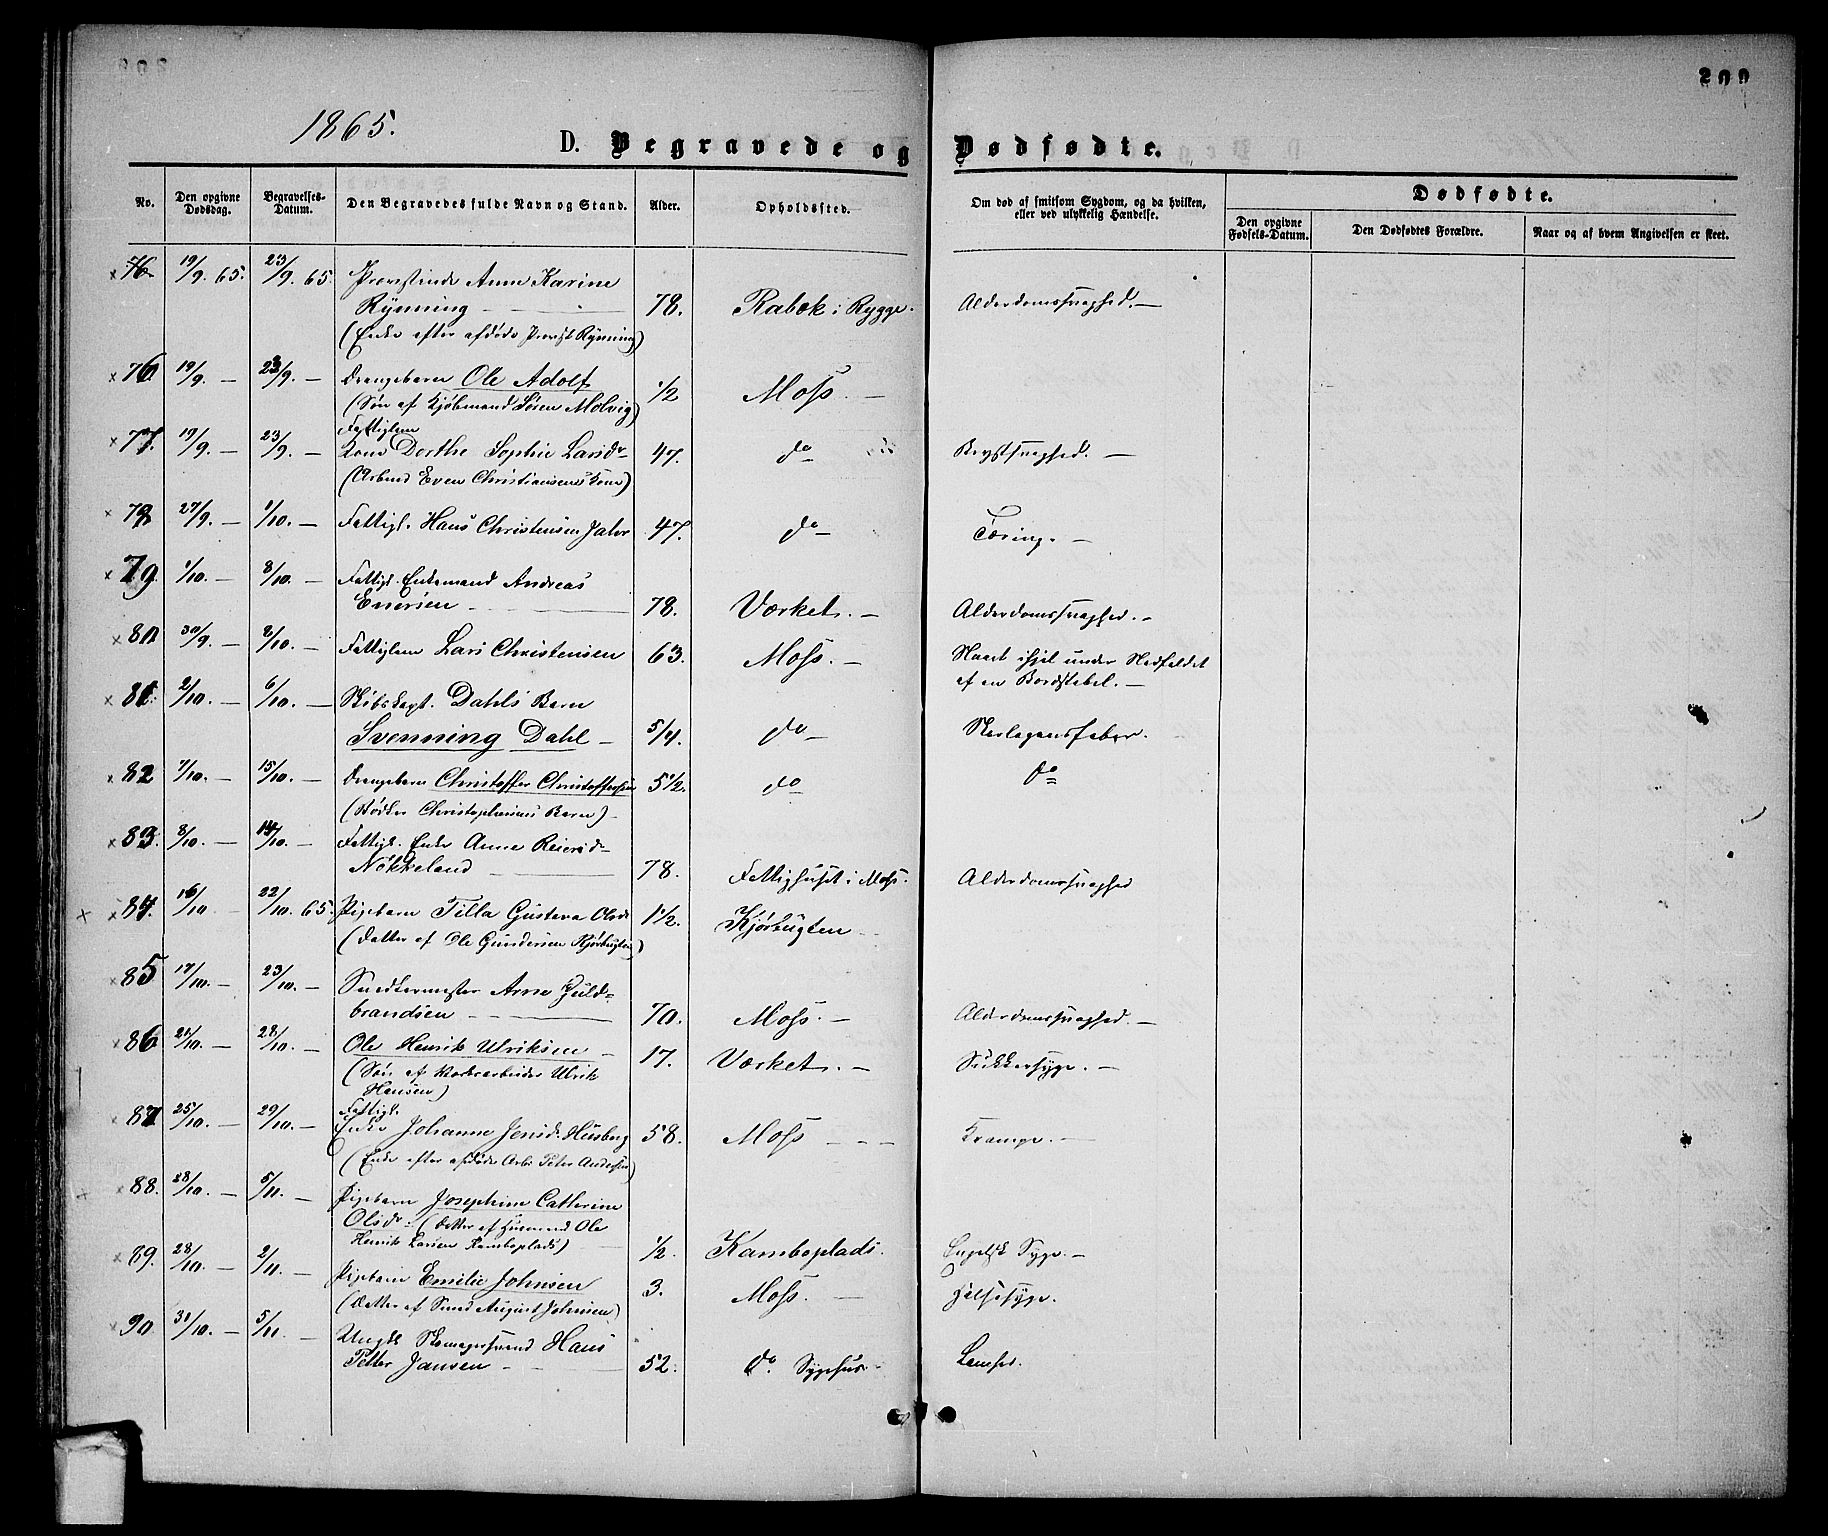 209
1865.
D. Begravede og Dødfødte.
No.
Den opgivne Dødsdag.
Begravelses-Datum.
Den Begravedes fulde Navn og Stand.
Alder.
Opholdssted.
Om død af smitsom Sygdom, og da hvilken, eller ved ulykkelig Hændelse.
Dødfødte.
Den opgivne Fødsels-Datum.
Den Dødfødtes Forældre.
Naar og af hvem Angivelsen er skeet.
76. 19/9. 65. 23/9. 65. Provstinde Anne Karine
Rynning 78. Rabæk i Rygge. Alderdomssvaghed. —
(Enke efter afdøde Provst Rynning)
76. 19/9. — 23/9. — Drengebarn Ole Adolf 1/2 Moss. —
(Søn af Kjøbmand Søren Molvig)
Fattiglem
77. 19/9. — 23/9. — Kone Dorthe Sophie Larsdr 47. do — Brystsvaghed. —
(Arbmd Even Christiansens Kone)
78. 27/9. — 1/10. — Fattigl. Hans Christensen Jahr 47. do — Tæring. —
79. 1/10. — 8/10. — Fattigl. Enkemand Andreas
Enersen 78. Værket. — Alderdomssvaghed. —
80. 30/9. — 8/10. — Fattiglem Lars Christensen 63. Moss. — Slaaet ihjel under Nedfaldet
af en Bordstabel. —
81. 2/10. — 6/10. — Skibskapt. Dahls Barn
Svenning Dahl — 5/4. do — Skarlagensfeber.
82 7/10. — 15/10. — Drengebarn Christoffer Christoffersen 5 1/2. do do
(Bødker Christophersens Barn) —
83. 8/10. — 14/10. — Fattigl. Enke Anne Reiersdr
Nøkkeland 78. Fattighuset i Moss. Alderdomssvaghed
84. 16/10 — 22/10. 65. Pigebarn Tilla Gustava Olsdr 1 1/2. Kjørbugten
(Datter af Ole Gundersen Kjørbugten)
85 17/10. — 23/10. — Snedkermester Arne Guld-
brandsen 70. Moss. — Alderdomssvaghed. —
86 21/10. — 28/10. — Ole Henrik Ulriksen — 17. Værket. — Sukkersyge. —
(Søn af Værksarbeider Ulrik
Hansen)
Fattigl.
87 25/10. — 29/10. — Enke Johanne Jensdr Husberg 58. Moss — Krampe. —
(Enke efter afdøde Arb. Peter Andersen)
88. 28/10. — 5/11. — Pigebarn Josephine Cathrine
Olsdr (Datter af Husmand Ole
Henrik Larsen Kamboplads) 1/2. Kamboplads. Engelsk Syge. —
89. 28/10. — 2/11. — Pigebarn Emilie Johnsen 3. Moss. — Halssyge.
(Datter af Smed August Johnsen)
90 31/10. — 5/11. — Ungk. Skomagersvend Hans
Petter Jansen 52. do. Sygehus.